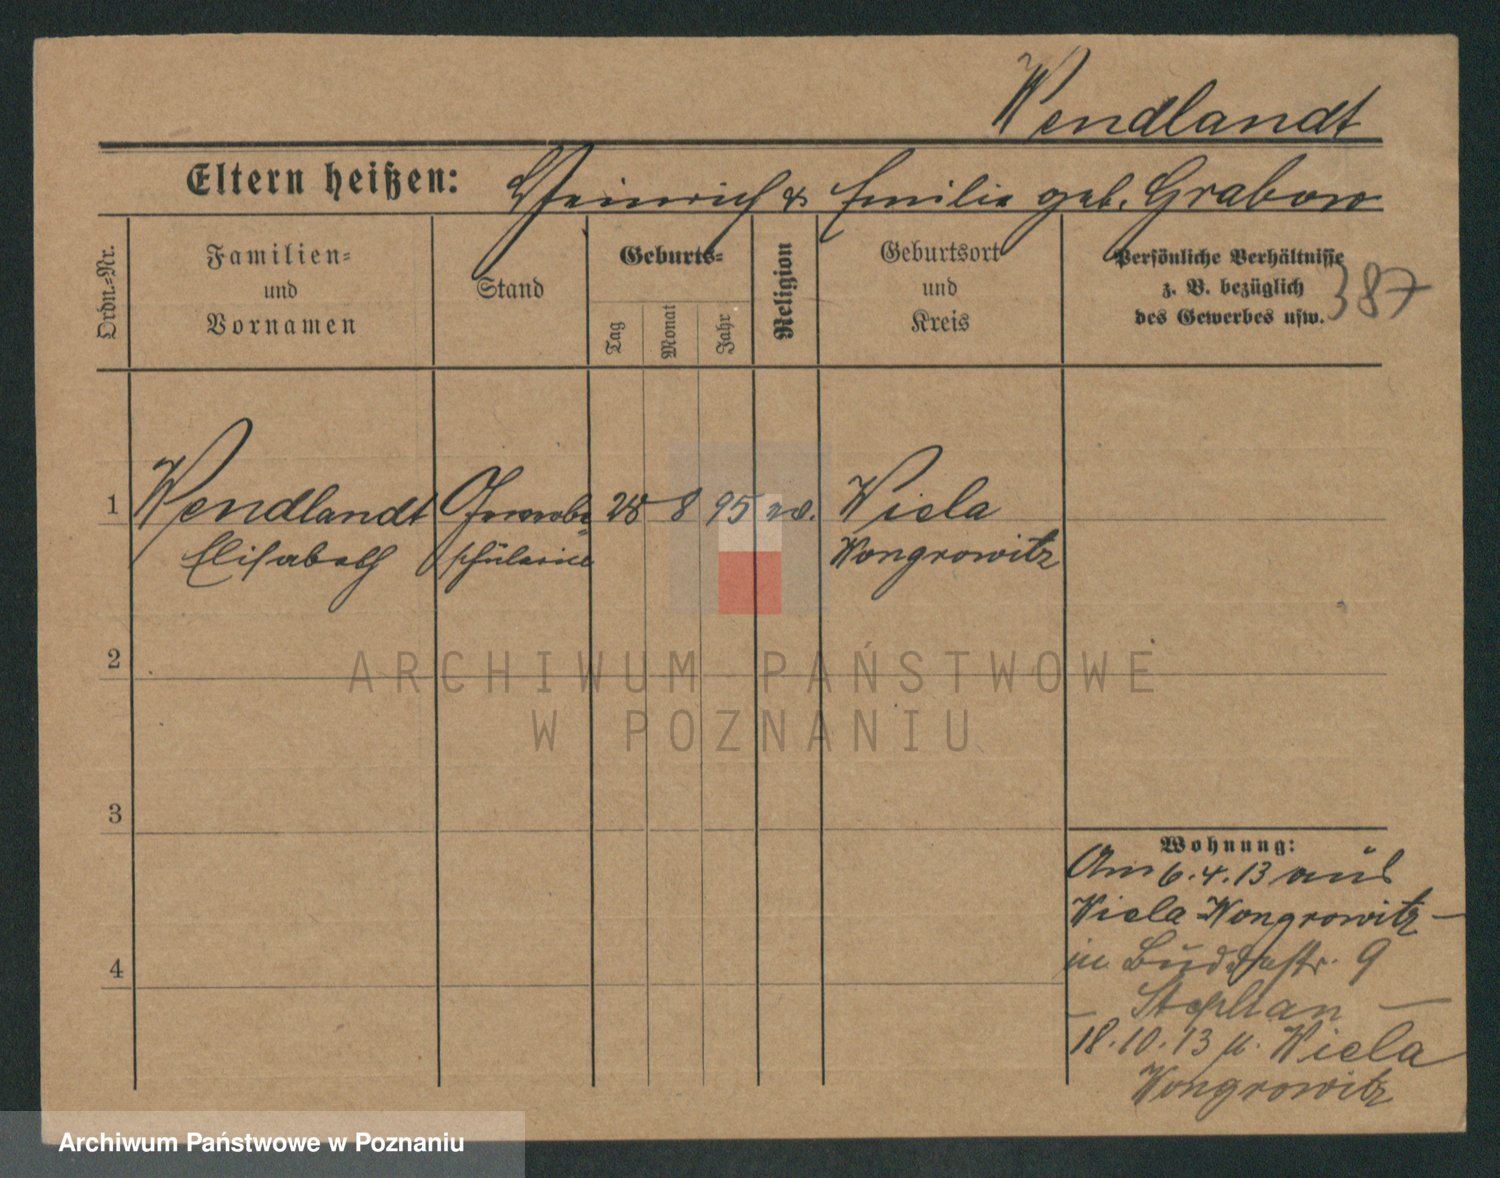 Wendlandt
Eltern heißen: Heinrich & Emilie geb. Grabow
Ordn.-Nr.
Familien-
und
Vornamen
Stand
Geburts-
Tag
Monat
Jahr
Religion
Geburtsort
und
Kreis
Persönliche Verhältnisse
z. B. bezüglich
des Gewerbes usw.
387
1 Wendlandt Gewerbe 28 8 95 ev. Wiela
Elisabeth schülerin Wongrowitz
2
3
4
Wohnung:
Am 6.4.13 aus
Wiela Wongrowitz –
in 9
– Stephan –
18.10.13 n. Wiela
Wongrowitz
ARCHIWUM PAŃSTWOWE
W POZNANIU
Archiwum Państwowe w Poznaniu